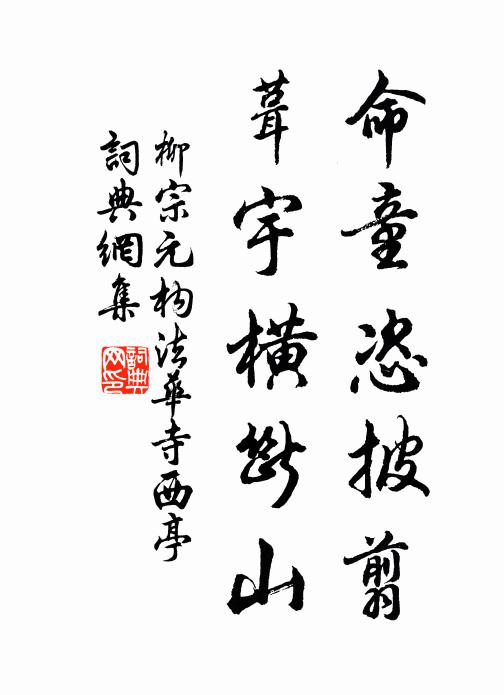 命童恣披翦
葺宇橫斷山
柳宗元构法華寺西亭
詞典網集
詞典
网印